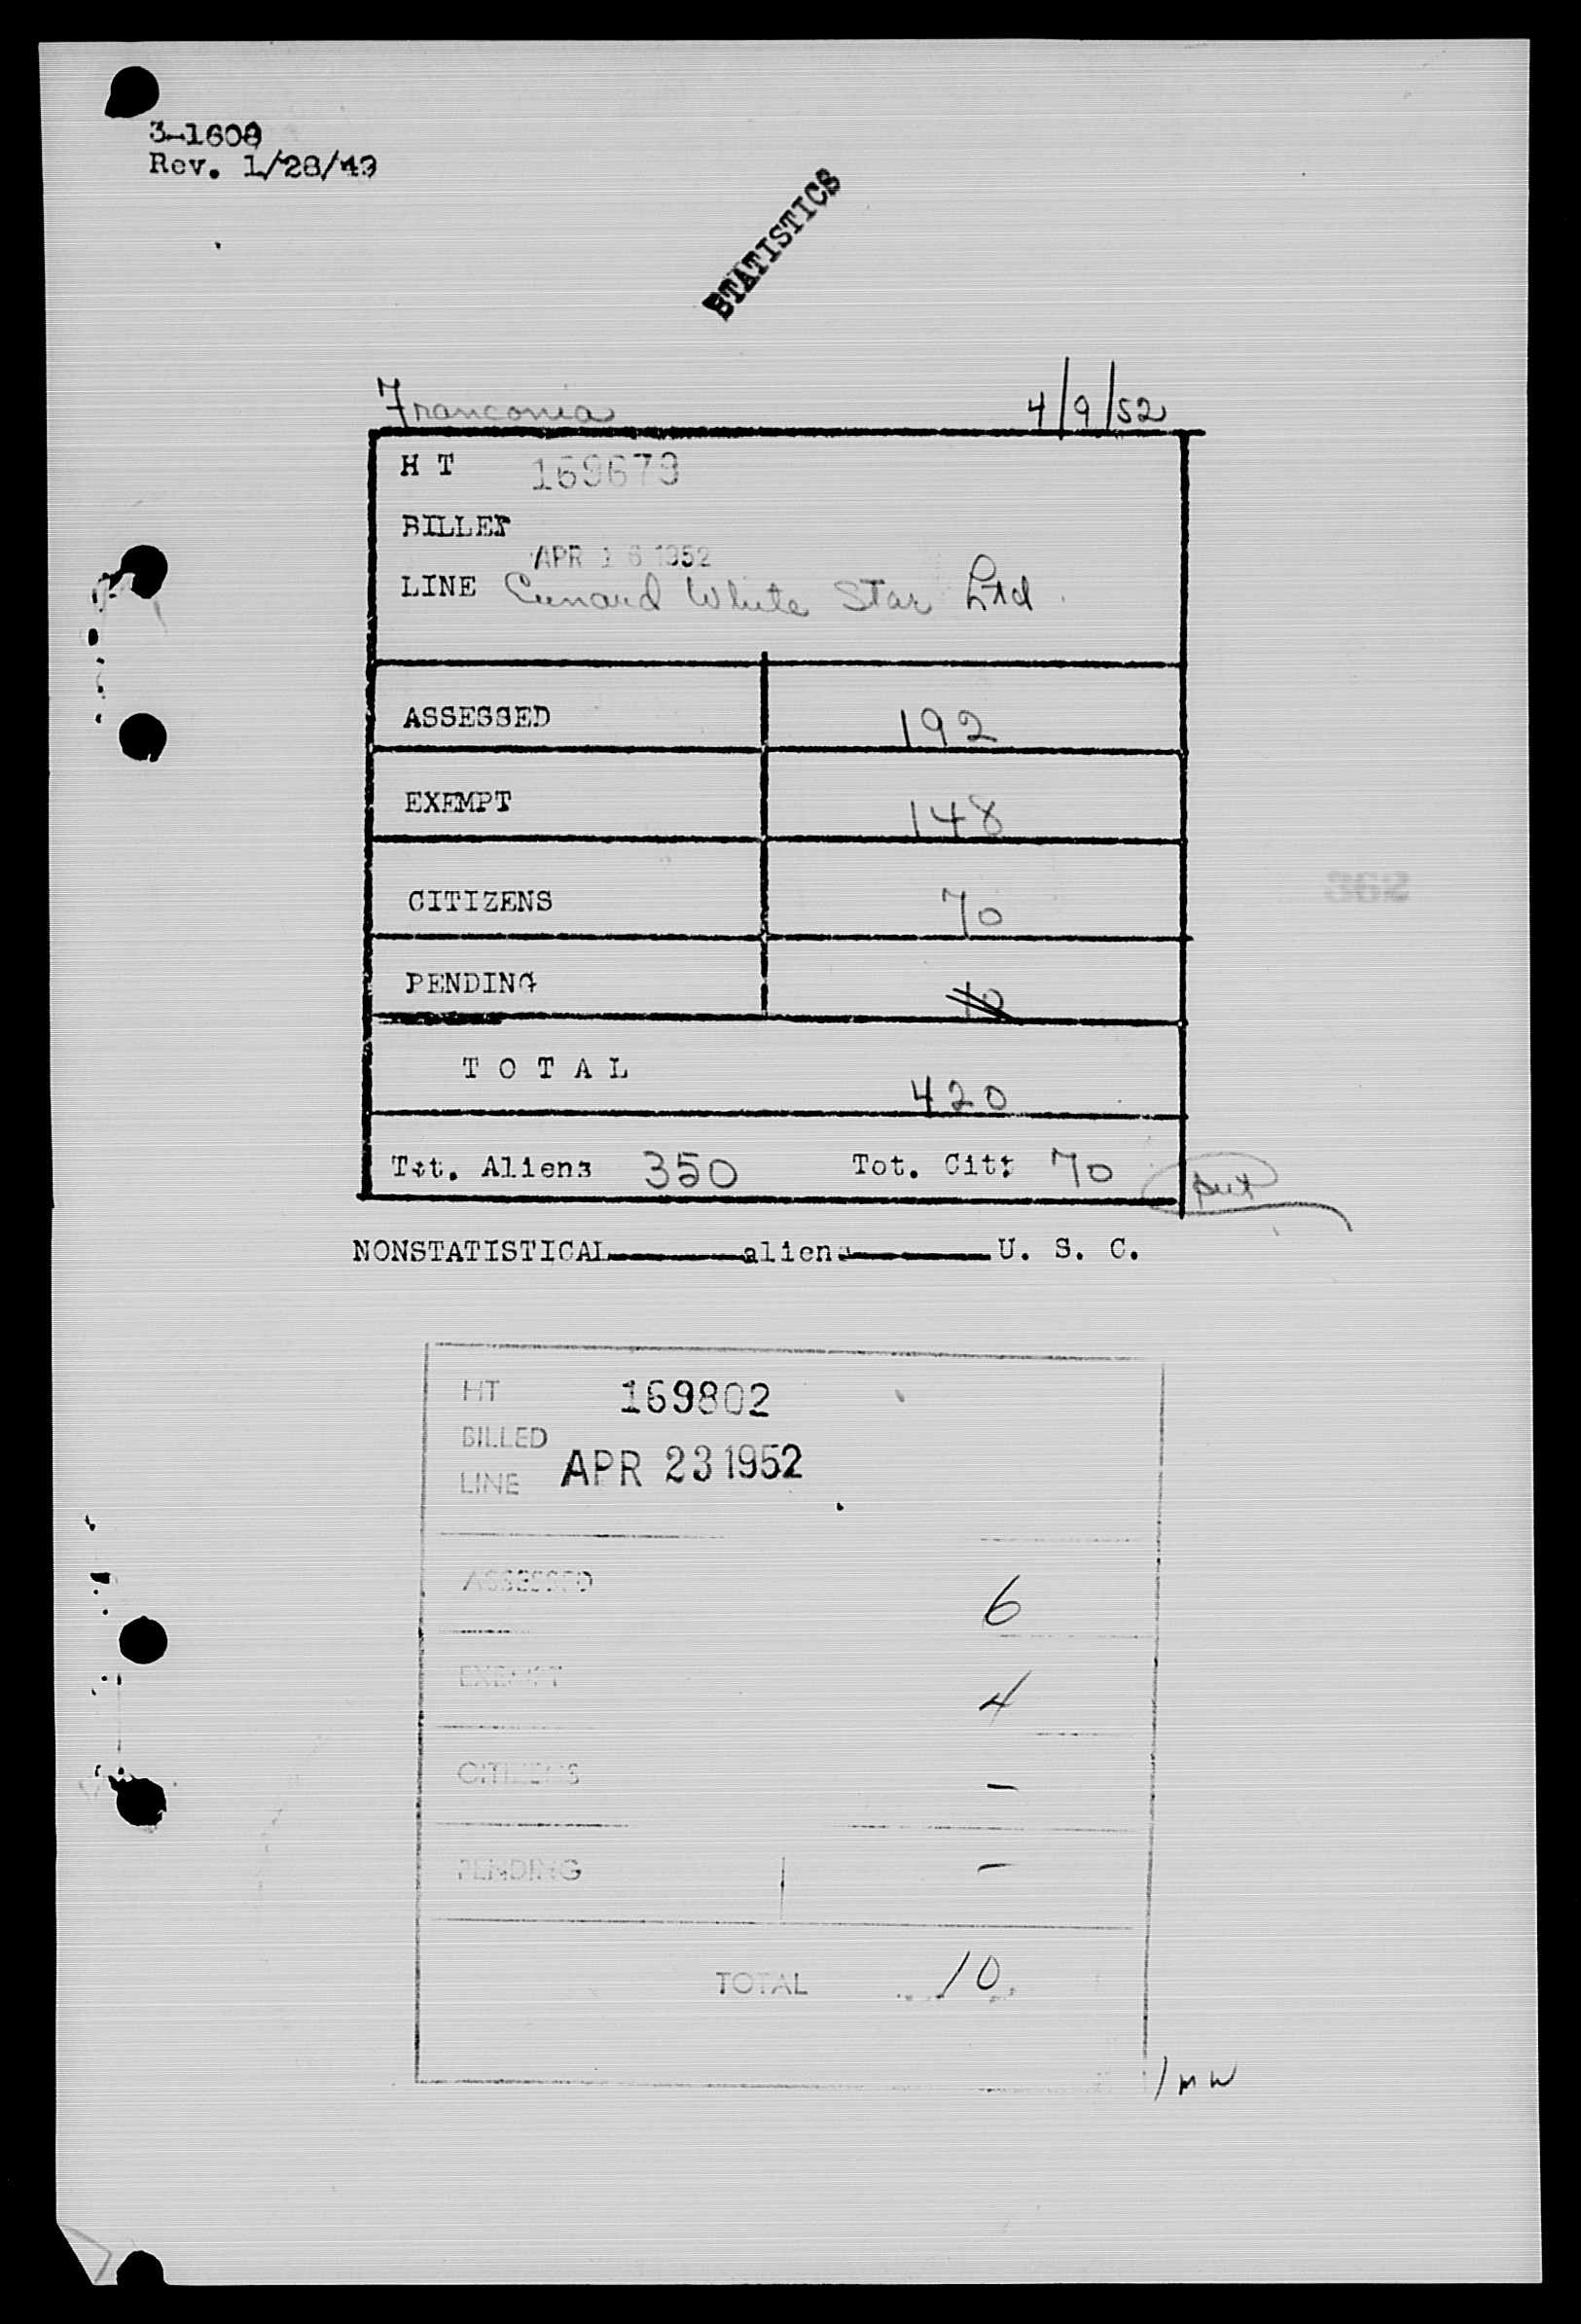 3-1608
Rev. 1/28/49
STATISTICS
Franconia 4/9/52
H T 169679
BILLET
APR 16 1952
LINE Cunard White Star Ltd.
ASSESSED 192
EXEMPT 148
CITIZENS 70
PENDING 10
T O T A L 420
Tot. Aliens 350 Tot. Cit: 70
NONSTATISTICAL aliens U. S. C.
HT 169802
BILLED
APR 23 1952
LINE
ASSESSED 6
EXEMPT 4
CITIZENS –
PENDING –
TOTAL 10
/MW